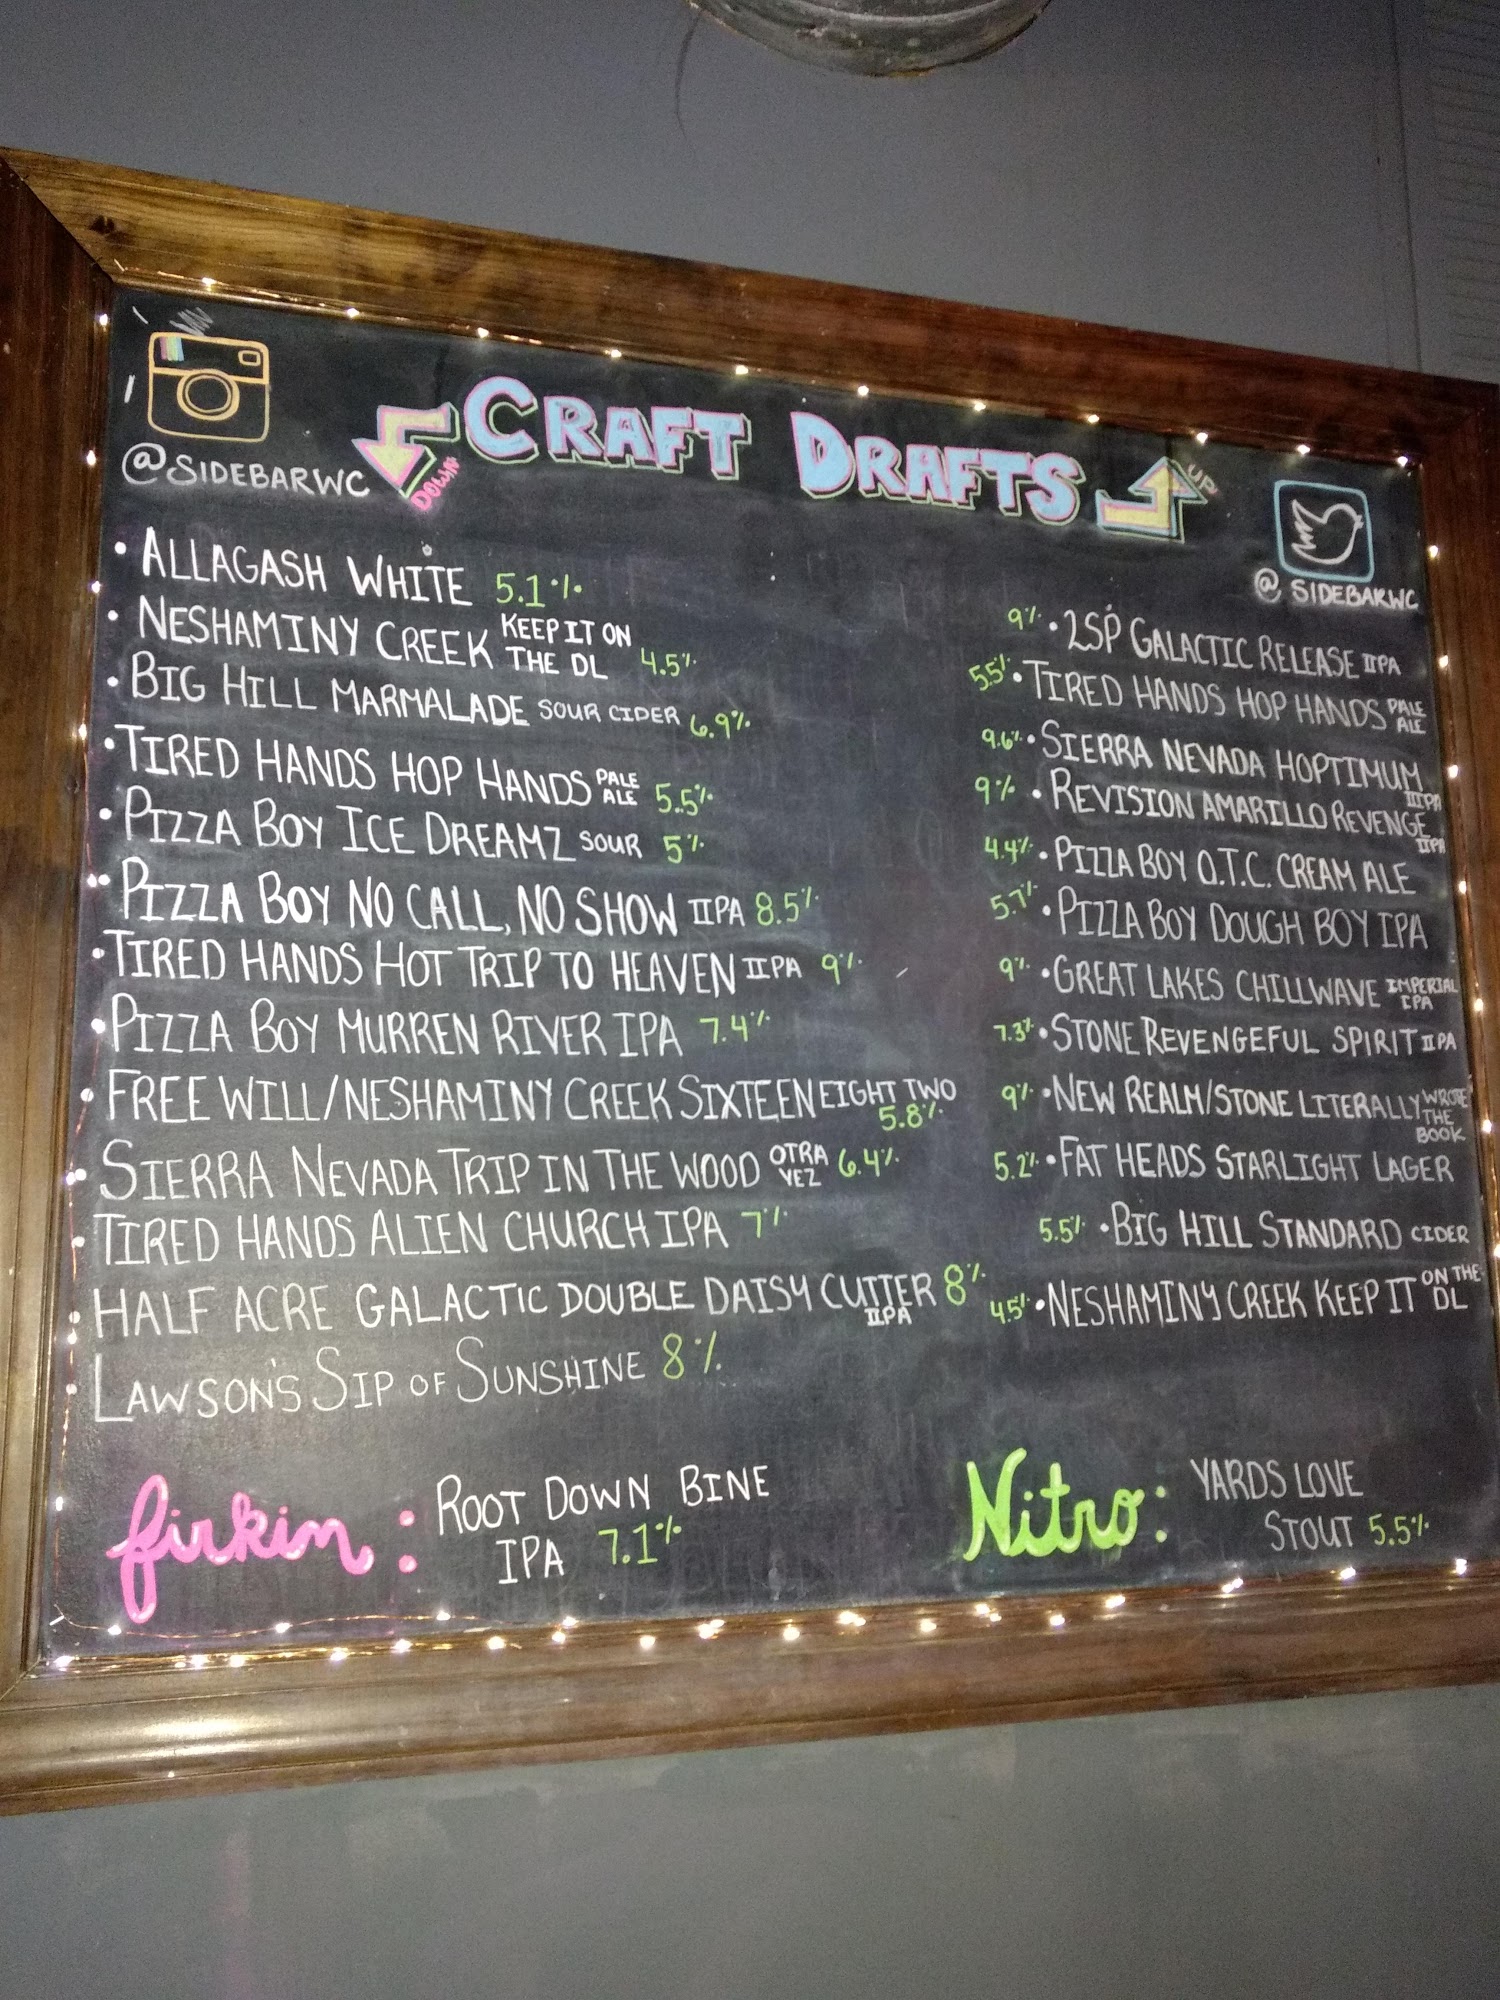 CRAFT DRAFTS
DOWN
UP
@SIDEBARWC
@SIDEBARWC
• ALLAGASH WHITE 5.1%
• NESHAMINY CREEK KEEP IT ON THE DL 4.5%
• BIG HILL MARMALADE SOUR CIDER 6.9%
• TIRED HANDS HOP HANDS PALE ALE 5.5%
• PIZZA BOY ICE DREAMZ SOUR 5%
• PIZZA BOY NO CALL, NO SHOW IIPA 8.5%
• TIRED HANDS HOT TRIP TO HEAVEN IIPA 9%
• PIZZA BOY MURREN RIVER IPA 7.4%
• FREE WILL/NESHAMINY CREEK SIXTEEN EIGHT TWO 5.8%
• SIERRA NEVADA TRIP IN THE WOOD OTRA VEZ 6.4%
• TIRED HANDS ALIEN CHURCH IPA 7%
• HALF ACRE GALACTIC DOUBLE DAISY CUTTER IIPA 8%
• LAWSON'S SIP OF SUNSHINE 8%
9% • 2SP GALACTIC RELEASE IIPA
5.5% • TIRED HANDS HOP HANDS PALE ALE
9.6% • SIERRA NEVADA HOPTIMUM IIIPA
9% • REVISION AMARILLO REVENGE IIPA
4.4% • PIZZA BOY O.T.C. CREAM ALE
5.7% • PIZZA BOY DOUGH BOY IPA
9% • GREAT LAKES CHILLWAVE IMPERIAL IPA
7.3% • STONE REVENGEFUL SPIRIT IIPA
9% • NEW REALM/STONE LITERALLY WROTE THE BOOK
5.2% • FAT HEADS STARLIGHT LAGER
5.5% • BIG HILL STANDARD CIDER
4.5% • NESHAMINY CREEK KEEP IT ON THE DL
firkin: ROOT DOWN BINE
IPA 7.1%
Nitro: YARDS LOVE
STOUT 5.5%